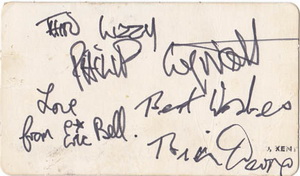 THIN LIZZY
PHILIP Lynott
Love
from Eric Bell.
Best Wishes
Brian Downey